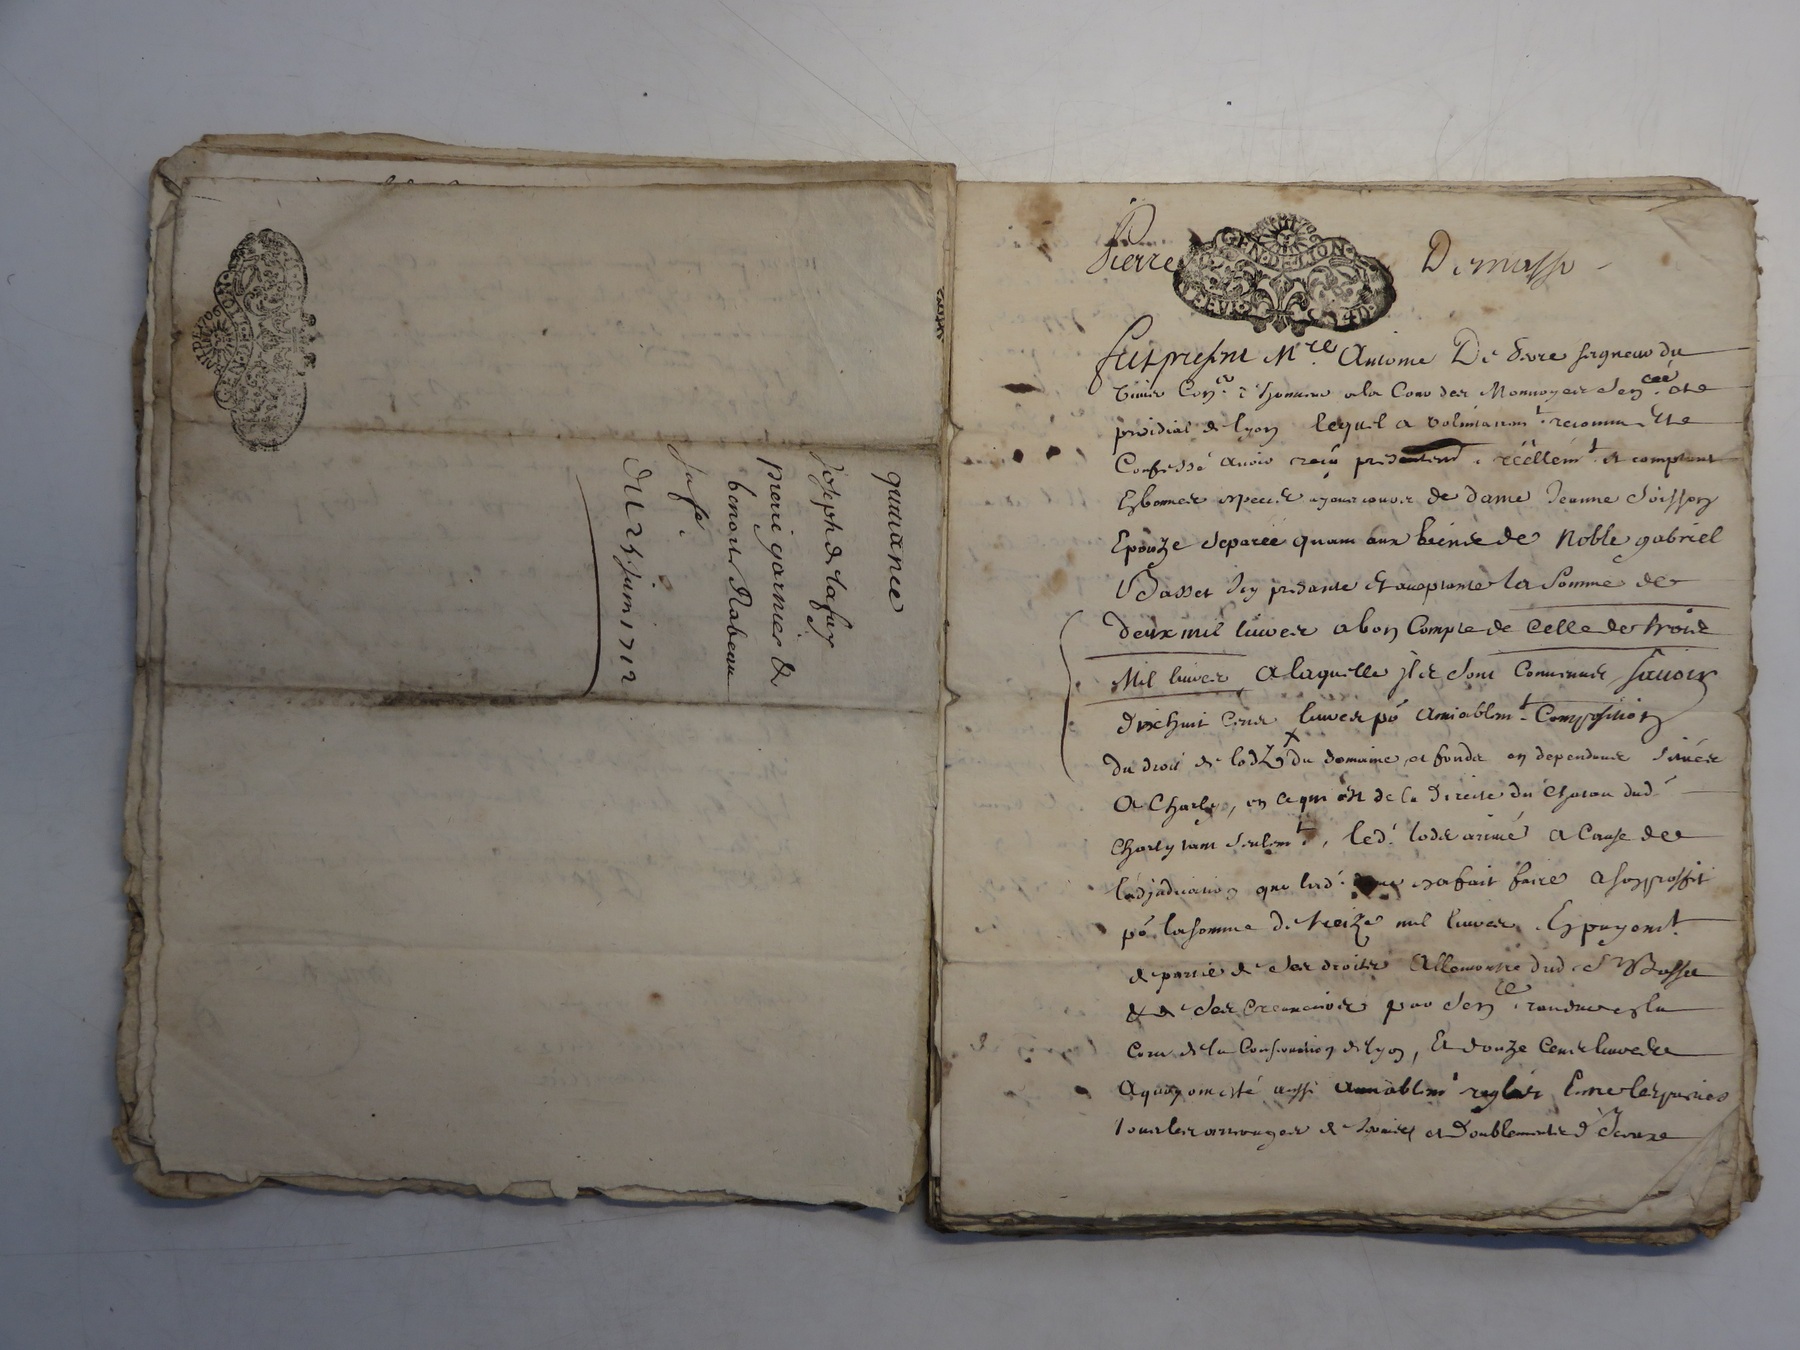 quittance
Joseph de lafay
pierre garnier &
benoit Nabeau
Du 25 juin 1712
GEN DE LYON
Pierre
Fut present Mre. Antoine De seigneur du
Conr. d'honneur a la Cour des Monnoyes Sencee. et
presidial de lyon lequel a volontairemt. reconnu Et
Confessé avoir reçu presentemt. réellemt. et comptant
En bonnes especes ayant cours de dame Jeanne Soisson
Epouze Separée quant aux biens de Noble gabriel
Basset Icy presante Et acceptante la Somme de
deux mil livres a bon Compte de Celle de trois
Mil livres a laquelle ils sont Convenus sauoir
dixhuit Cens livres po. amiablemt. Composition
du droit de lodz du domaine et fonds en dependans situés
A Charly, en ce qui est de la Directe du Chateau dud.
Charly tant seulemt., led. lods arivé a Cause de
l'adjudication que lad. a fait faire a son proffit
po. la somme de treize mil livres En payemt.
de partie de ses droits Allencontre dud. Sr Basset
& de ses Creanciers par Sence. randue en la
Cour de la Conservation de lyon, Et douze Cens livres
A quoy ont esté aussi amiablemt. reglés Entre les parties
tous les arrerages de et doublements d'